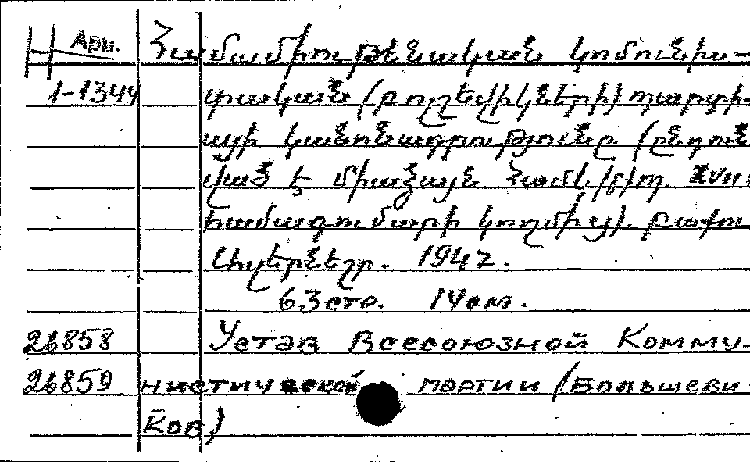 Н Арм. Համամիութենական կոմունիս-
1-1344 տական (բոլշևիկների) պարտի-
այի կանոնադրությունը (ընդուն
ված է միաձայն Համկ/բ/պ. XVIII
համագումարի կողմից). Բաքու
Ազերնեշր. 1947.
63 стр. 14 см.
26858 Устав Всесоюзной Комму-
26859 нистической партии (Большеви-
ков)